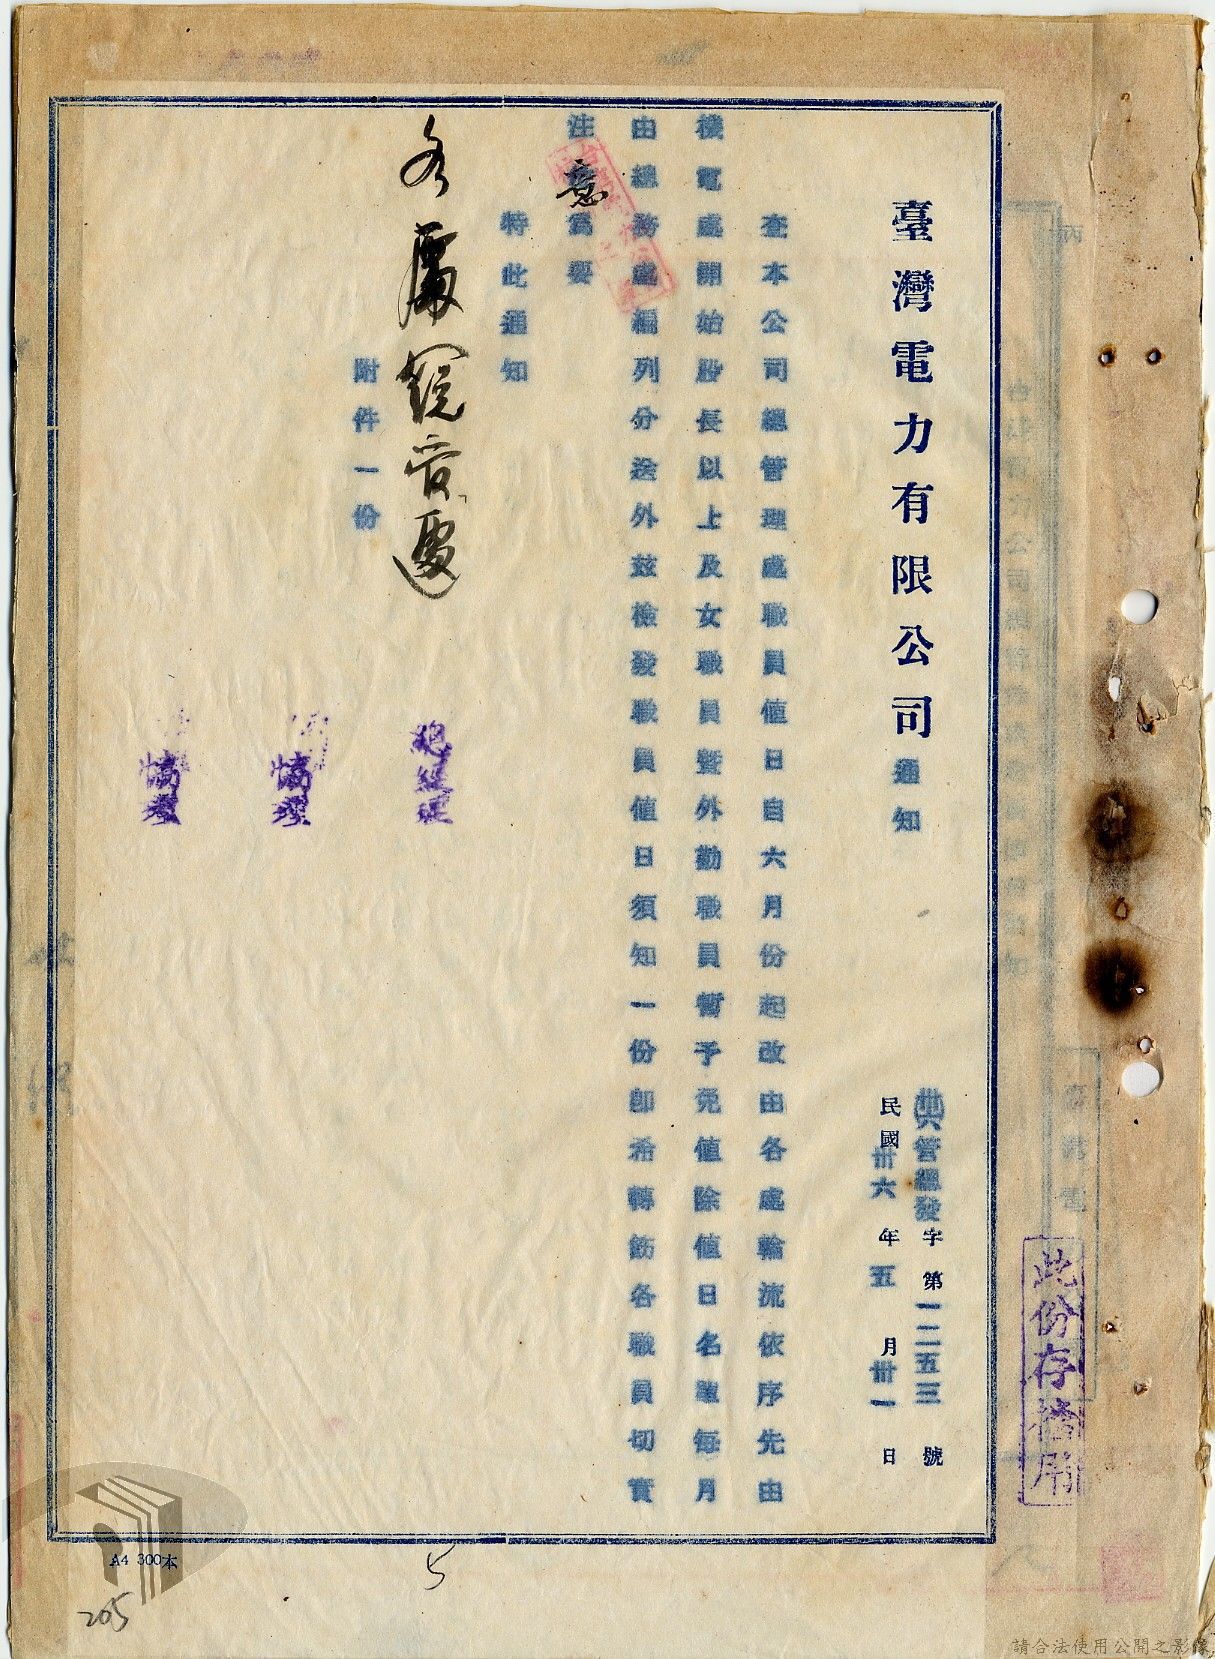 臺灣電力有限公司通知
卅六管總發字第一二五三號
民國卅六年五月卅一日
查本公司總管理處職員值日自六月份起改由各處輪流依序先由
機電處開始股長以上及女職員暨外勤職員暫予免值除值日名單每月
由總務處編列分送外茲檢發職員值日須知一份卽希轉飭各職員切實
注意為要
特此通知
各處
附件一份
總經理
協理
協理
此份存檔用
A4 300本
205
5
請合法使用公開之影像